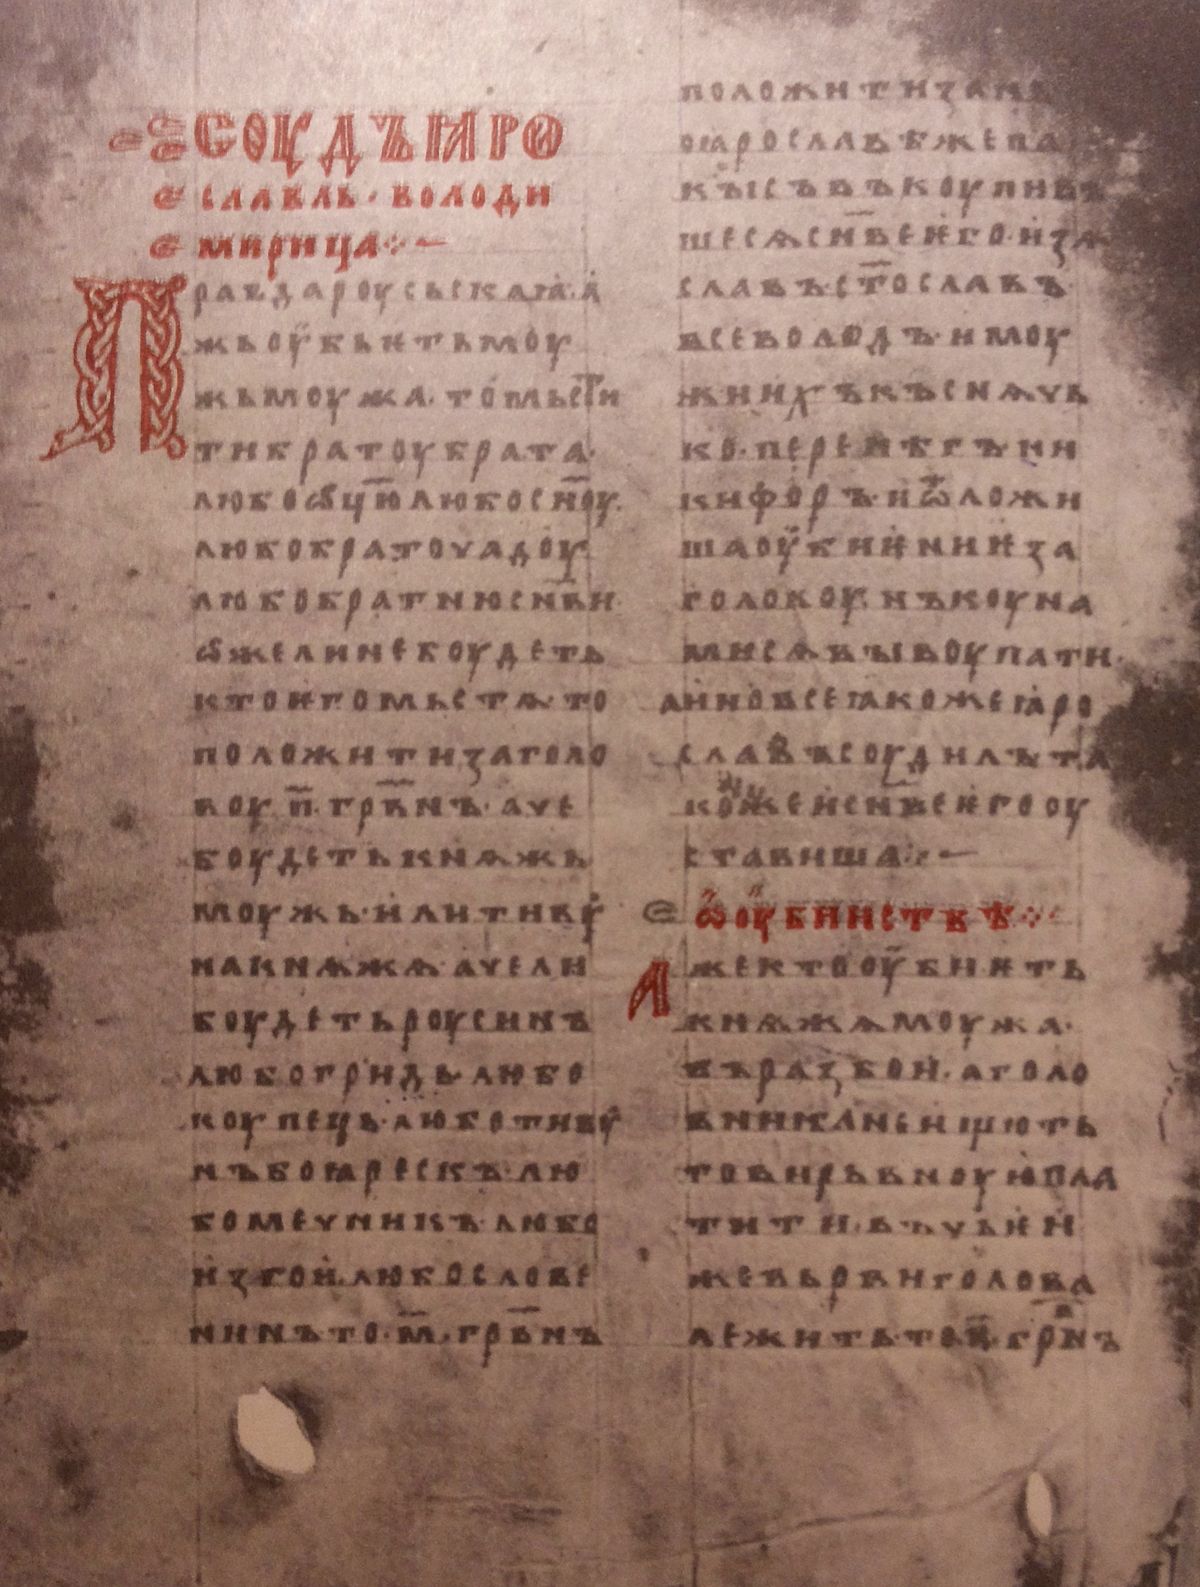 СОУДЪ ꙖРО
СЛАВЛЬ · ВОЛОДИ
МИРИЦА ⁘ —
ПРАВДА РОУСЬСКАꙖ · А
ЖЬ ОУБЬЕТЬ МОУ
ЖЬ МОУЖА · ТО МЬСТИ
ТИ БРАТОУ БРАТА ·
ЛЮБО ѾЦЮ ЛЮБО СН҃ОУ ·
ЛЮБО БРАТОУЧАДОУ
ЛЮБО БРАТНЮ СН҃ВИ ·
ѠЖЕ ЛИ НЕ БОУДЕТЬ
КТО ЕГО МЬСТѦ · ТО
ПОЛОЖИТИ ЗА ГОЛО
ВОУ · П҃ · ГРВ҃НЪ · АЧЕ
БОУДЕТЬ КНѦЖЬ
МОУЖЬ · ИЛИ ТИВУ
НА КНѦЖѦ · АЧЕ ЛИ
БОУДЕТЬ РОУСИНЪ
ЛЮБО ГРИДЬ · ЛЮБО
КОУПЕЦЬ · ЛЮБО ТИВУ
НЪ БОꙖРЕСКЪ · ЛЮ
БО МЕЧНИКЪ · ЛЮБО
ИЗГОИ · ЛЮБО СЛОВЕ
НИНЪ ТО · М҃ · ГРВ҃НЪ
ПОЛОЖИТИ ЗА НЬ
ПО ꙖРОСЛАВѢ ЖЕ ПА
КЫ СЪВЪКОУПИВЪ
ШЕСѦ СН҃ВЕ ЕГО · ИЗѦ
СЛАВЪ · СТ҃ОСЛАВЪ ·
ВСЕВОЛОДЪ · И МОУ
ЖИ ИХЪ КЪСНѦЧЬ
КО · ПЕРЕНѢГЪ · НИ
КИФОРЪ · И ѾЛОЖИ
ША ОУБИЕНИЕ ЗА
ГОЛОВОУ · НЪ КОУНА
МИ СѦ ВЫКОУПАТИ ·
А ИНО ВСЕ ꙖКОЖЕ ꙖРО
СЛАВЪ СОУДИЛЪ ТА
КОЖЕ И СН҃ВЕ ЕГО ОУ
СТАВИША ⁘ —
Ѡ ОУБИИСТВѢ ⁘
АЖЕ КТО ОУБИЕТЬ
КНѦЖѦ МОУЖА ·
ВЪ РАЗБОИ · А ГОЛО
ВНИКА НЕ ИЩЮТЬ
ТО ВИРЬВНОУЮ ПЛА
ТИТИ · ВЪ ЧЬЕИ
ЖЕ ВЬРВИ ГОЛОВА
ЛЕЖИТЬ · ТО П҃ · ГРВ҃НЪ